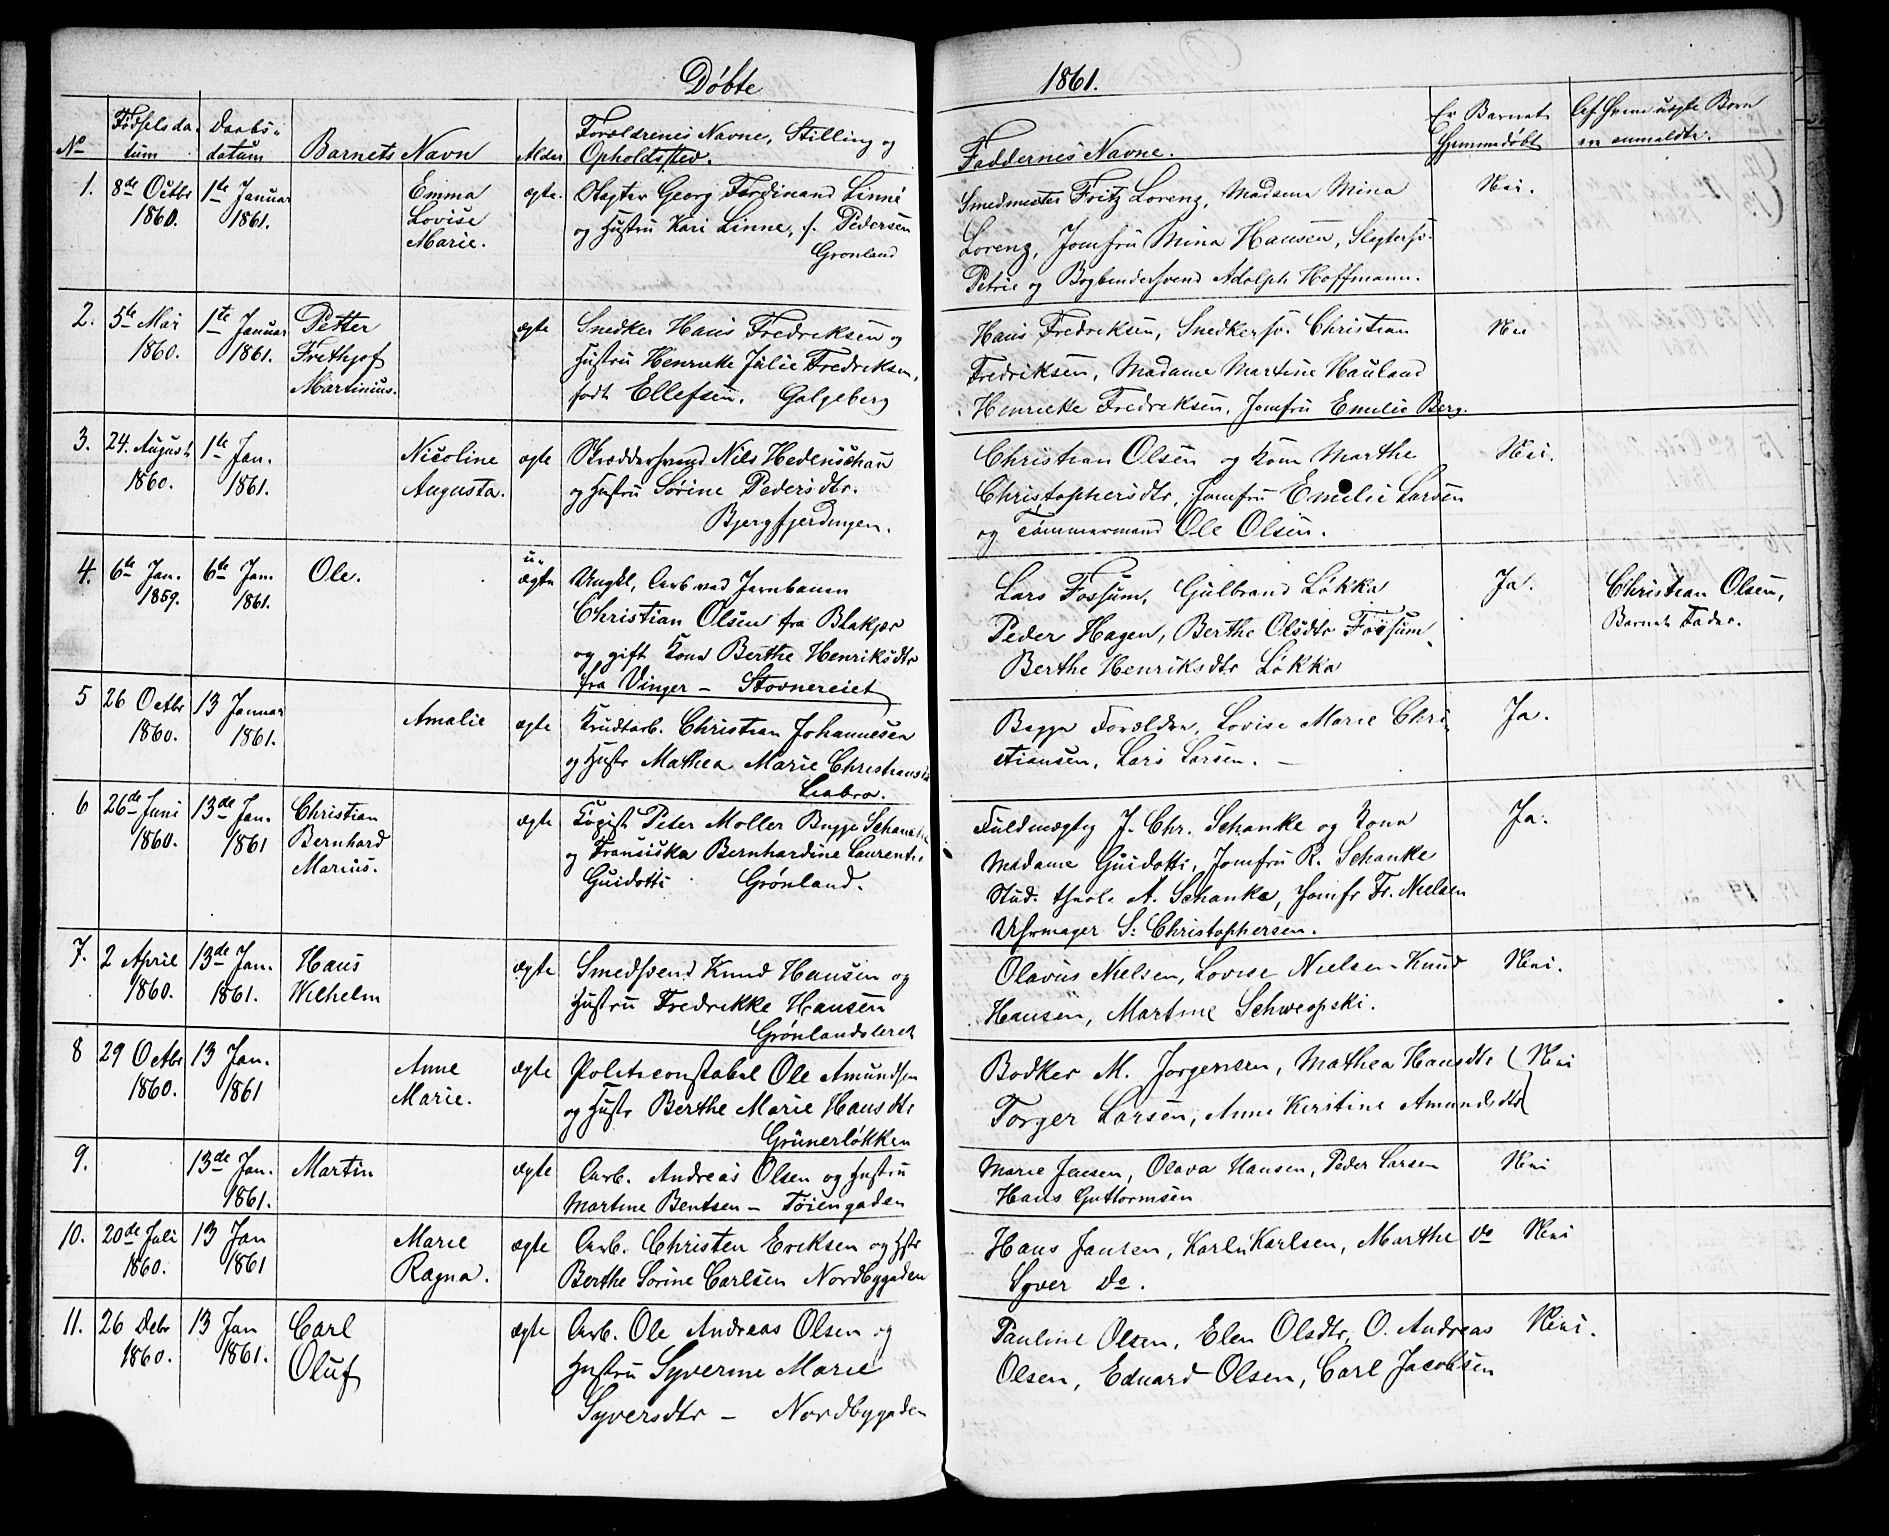 Døbte
1861.
No
Fødselsda-
tum
Daabs-
datum
Barnets Navn
Alder
Forældrenes Navne, Stilling og
Opholdssted.
Faddernes Navne.
Er Barnet
Hjemmedøbt
Af Hvem uægte Børn
er anmeldte.
1.
8de Octbr
1860.
1te Januar
1861.
Emma
Lovise
Marie.
ægte.
Slagter Georg Ferdinand Linné
og Hustru Kari Linne, f. Pedersen
Grønland
Smedmester Fritz Lorenz, Madame Mina
Lorenz, Jomfru Mina Hansen, Slagtersv.
Petrie og Bogbindersvend Adolph Hoffmann.
Nei.
2.
5te Mai
1860.
1te Januar
1861.
Petter
Frethjof
Martinius.
ægte
Snedker Hans Fredriksen og
Hustru Henricke Julie Fredriksen,
født Ellefsen. Galgeberg
Hans Fredriksen, Snedkersv. Christian
Fredriksen, Madame Martine Hauland
Henricke Fredriksen, Jomfru Emilie Berg.
Nei
3.
24. August
1860.
1te Jan.
1861.
Nicoline
Augusta.
ægte
Skreddersvend Nils Hedenschau
og Hustru Sørine Pedersdtr.
Bjergfjerdingen.
Christian Olsen og Kone Marthe
Christophersdtr, Jomfru Emilie Larsen
og Tømmermand Ole Olsen.
Nei.
4.
6te Jan.
1859.
6te Jan.
1861.
Ole.
u-
ægte
Ungkl, Arb ved Jernbanen
Christian Olsen fra Blakjær
og gift Kone Berthe Henriksdtr
fra Vinger - Stovnereiet
Lars Fossum, Gulbrand Løkka
Peder Hagen, Berthe Olsdtr Fossum,
Berthe Henriksdtr Løkka
Ja.
Christian Olsen,
Barnets Fader.
5
26 Octbr
1860.
13 Januar
1861.
Amalie
ægte
Krudtarb. Christian Johannesen
og Hustr Mathea Marie Christiansdtr
Liabro.
Begge Forældre, Lovise Marie Chri-
stiansen, Lars Larsen. -
Ja.
6
26de Juni
1860.
13de Jan.
1861
Christian
Bernhard
Marius.
ægte
Kopist Peter Møller Bugge Schancke
og Fransiska Bernhardine Laurentie
Guidotti Grønland.
Fuldmægtig J. Chr. Schanke og Kone
Madame Guidotti, Jomfru R. Schanke
Stud. theol. A. Schanke, Jomfr Fr. Nielsen
Uhrmager S. Christophersen.
Ja.
7.
2 April
1860.
13de Jan.
1861.
Hans
Wilhelm
ægte
Smedsvend Knud Hansen og
Hustru Fredrikke Hansen
Grønlandsleret
Olavus Nielsen, Lovise Nielsen Knud
Hansen, Martine Schweopski.
Nei.
8
29 Octbr
1860.
13 Jan.
1861
Anne
Marie.
ægte
Politiconstabel Ole Amundsen
og Hustr Berthe Marie Hansdtr
Grünerløkken
Bødker M. Jørgensen, Mathea Hansdtr
Torger Larsen, Anne Kirstine Amundsdtr
Nei
9.
13de Jan.
1861.
Martin
ægte
Arb. Andreas Olsen og Hustru
Martine Bentsen - Tøiengaden
Marie Jensen, Olava Hansen, Peder Larsen
Hans Guttormsen
Nei
10.
20de Juli
1860.
13 Jan
1861
Marie
Ragna.
ægte
Arb. Christen Eriksen og Hstr
Berthe Sorine Carlsen Nordbygaden
Hans Jansen, Karl Karlsen, Marthe do
Syver do.
Nei
11.
26 Debr
1860.
13 Jan
1861.
Carl
Oluf
ægte
Arb. Ole Andreas Olsen og
Hustru Syverine Marie
Syversdtr - Nordbygaden
Pauline Olsen, Elen Olsdtr, O. Andreas
Olsen, Eduard Olsen, Carl Jacobsen
Nei.